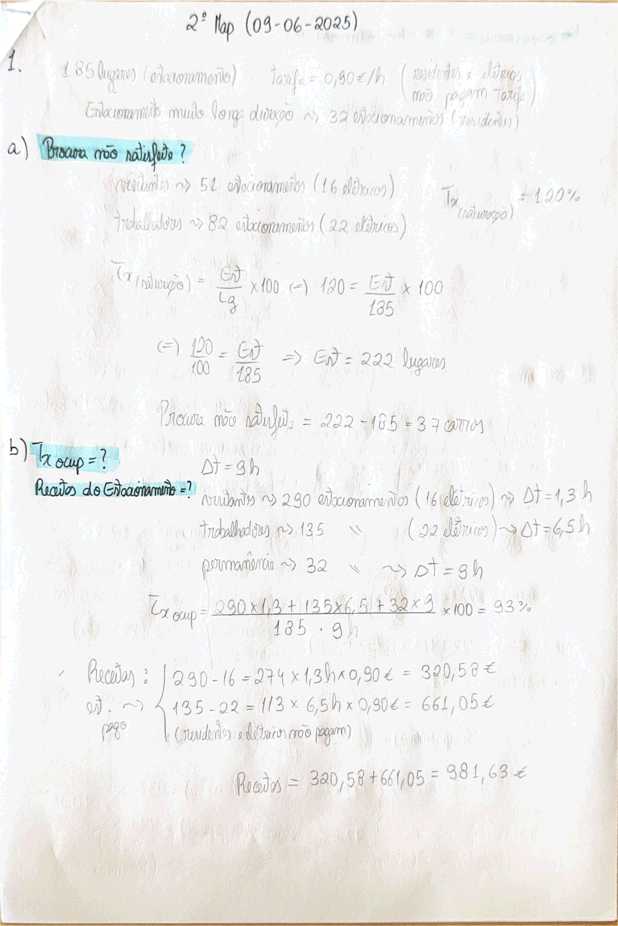 2º Map (09-06-2025)
1.
185 lugares (estacionamento) tarifa = 0,90€/h (residentes e elétricos não pagam tarifa)
Estacionamento muito longa duração ~> 32 estacionamentos (residentes)
a) Procura não satisfeita?
visitantes ~> 51 estacionamentos (16 elétricos)
Tx (saturação) = 120%
trabalhadores ~> 82 estacionamentos (22 elétricos)
Tx (saturação) = Est/Lg × 100 (=) 120 = Est/185 × 100
(=) 120/100 = Est/185 => Est = 222 lugares
Procura não satisfeita = 222 - 185 = 37 carros
b) Tx ocup = ?
Δt = 9h
Receitas do Estacionamento = ?
visitantes ~> 290 estacionamentos (16 elétricos) ~> Δt = 1,3 h
trabalhadores ~> 135 " (22 elétricos) ~> Δt = 6,5 h
permanência ~> 32 " ~> Δt = 9h
Tx ocup = 290×1,3 + 135×6,5 + 32×9 / 185 . 9h × 100 = 93%
Receitas: 290 - 16 = 274 × 1,3h × 0,90€ = 320,58€
est. ~> 135 - 22 = 113 × 6,5h × 0,90€ = 661,05€
pago (residentes e elétricos não pagam)
Receitas = 320,58 + 661,05 = 981,63€